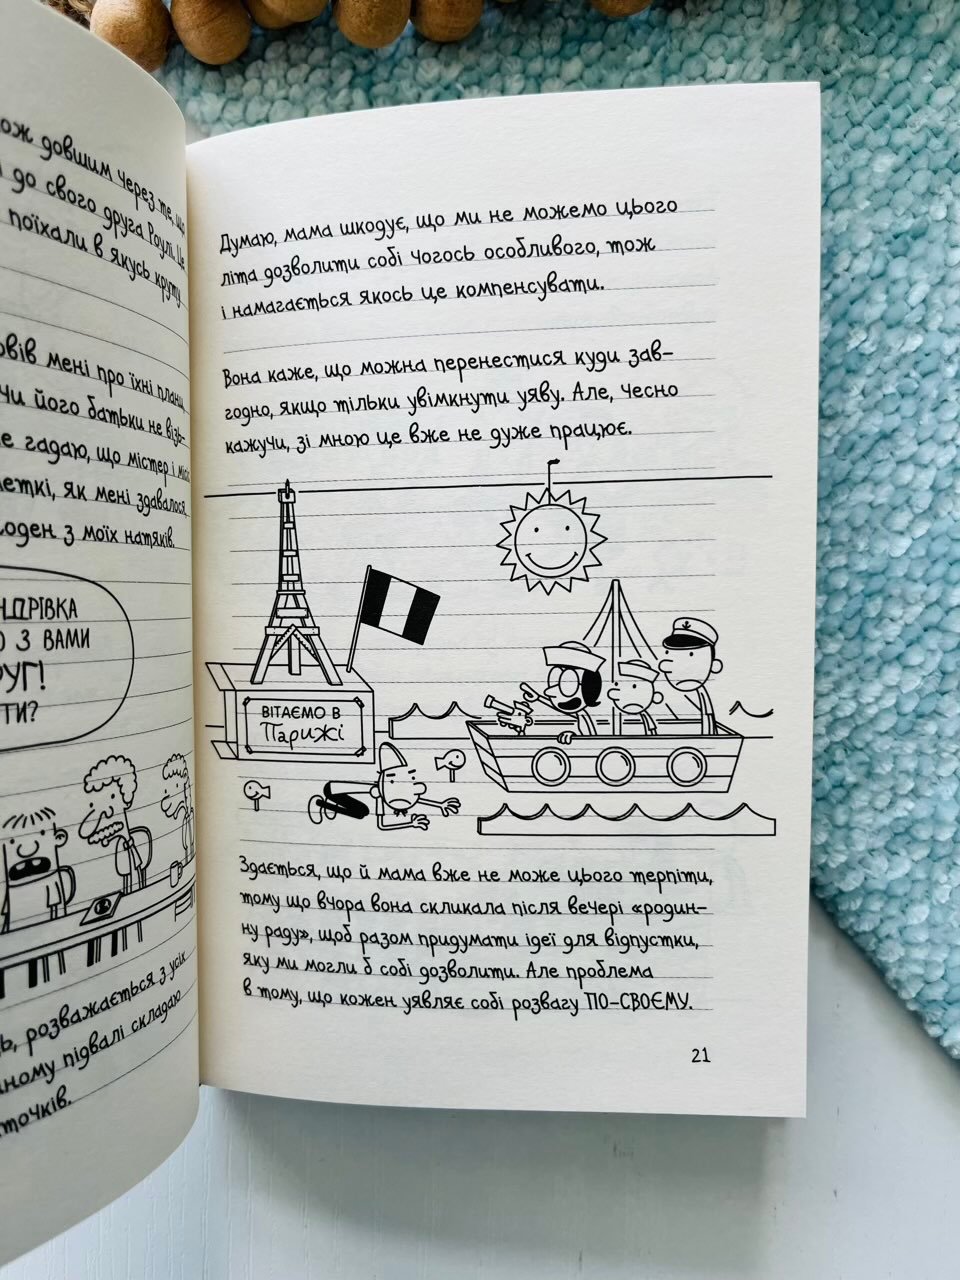 довшим через те, що
до свого друга Роулі. Це
поїхали в якусь круту
мені про їхні плани,
Чи його батьки не візь-
гадаю, що містер і міс
як мені здавалося,
з моїх натяків.
З ВАМИ
розважається з усіх
підвалі складаю
Думаю, мама шкодує, що ми не можемо цього
літа дозволити собі чогось особливого, тож
і намагається якось це компенсувати.
Вона каже, що можна перенестися куди зав-
годно, якщо тільки увімкнути уяву. Але, чесно
кажучи, зі мною це вже не дуже працює.
ВІТАЄМО В
Парижі
Здається, що й мама вже не може цього терпіти,
тому що вчора вона скликала після вечері «родин-
ну раду», щоб разом придумати ідеї для відпустки,
яку ми могли б собі дозволити. Але проблема
в тому, що кожен уявляє собі розвагу ПО-СВОЄМУ.
21